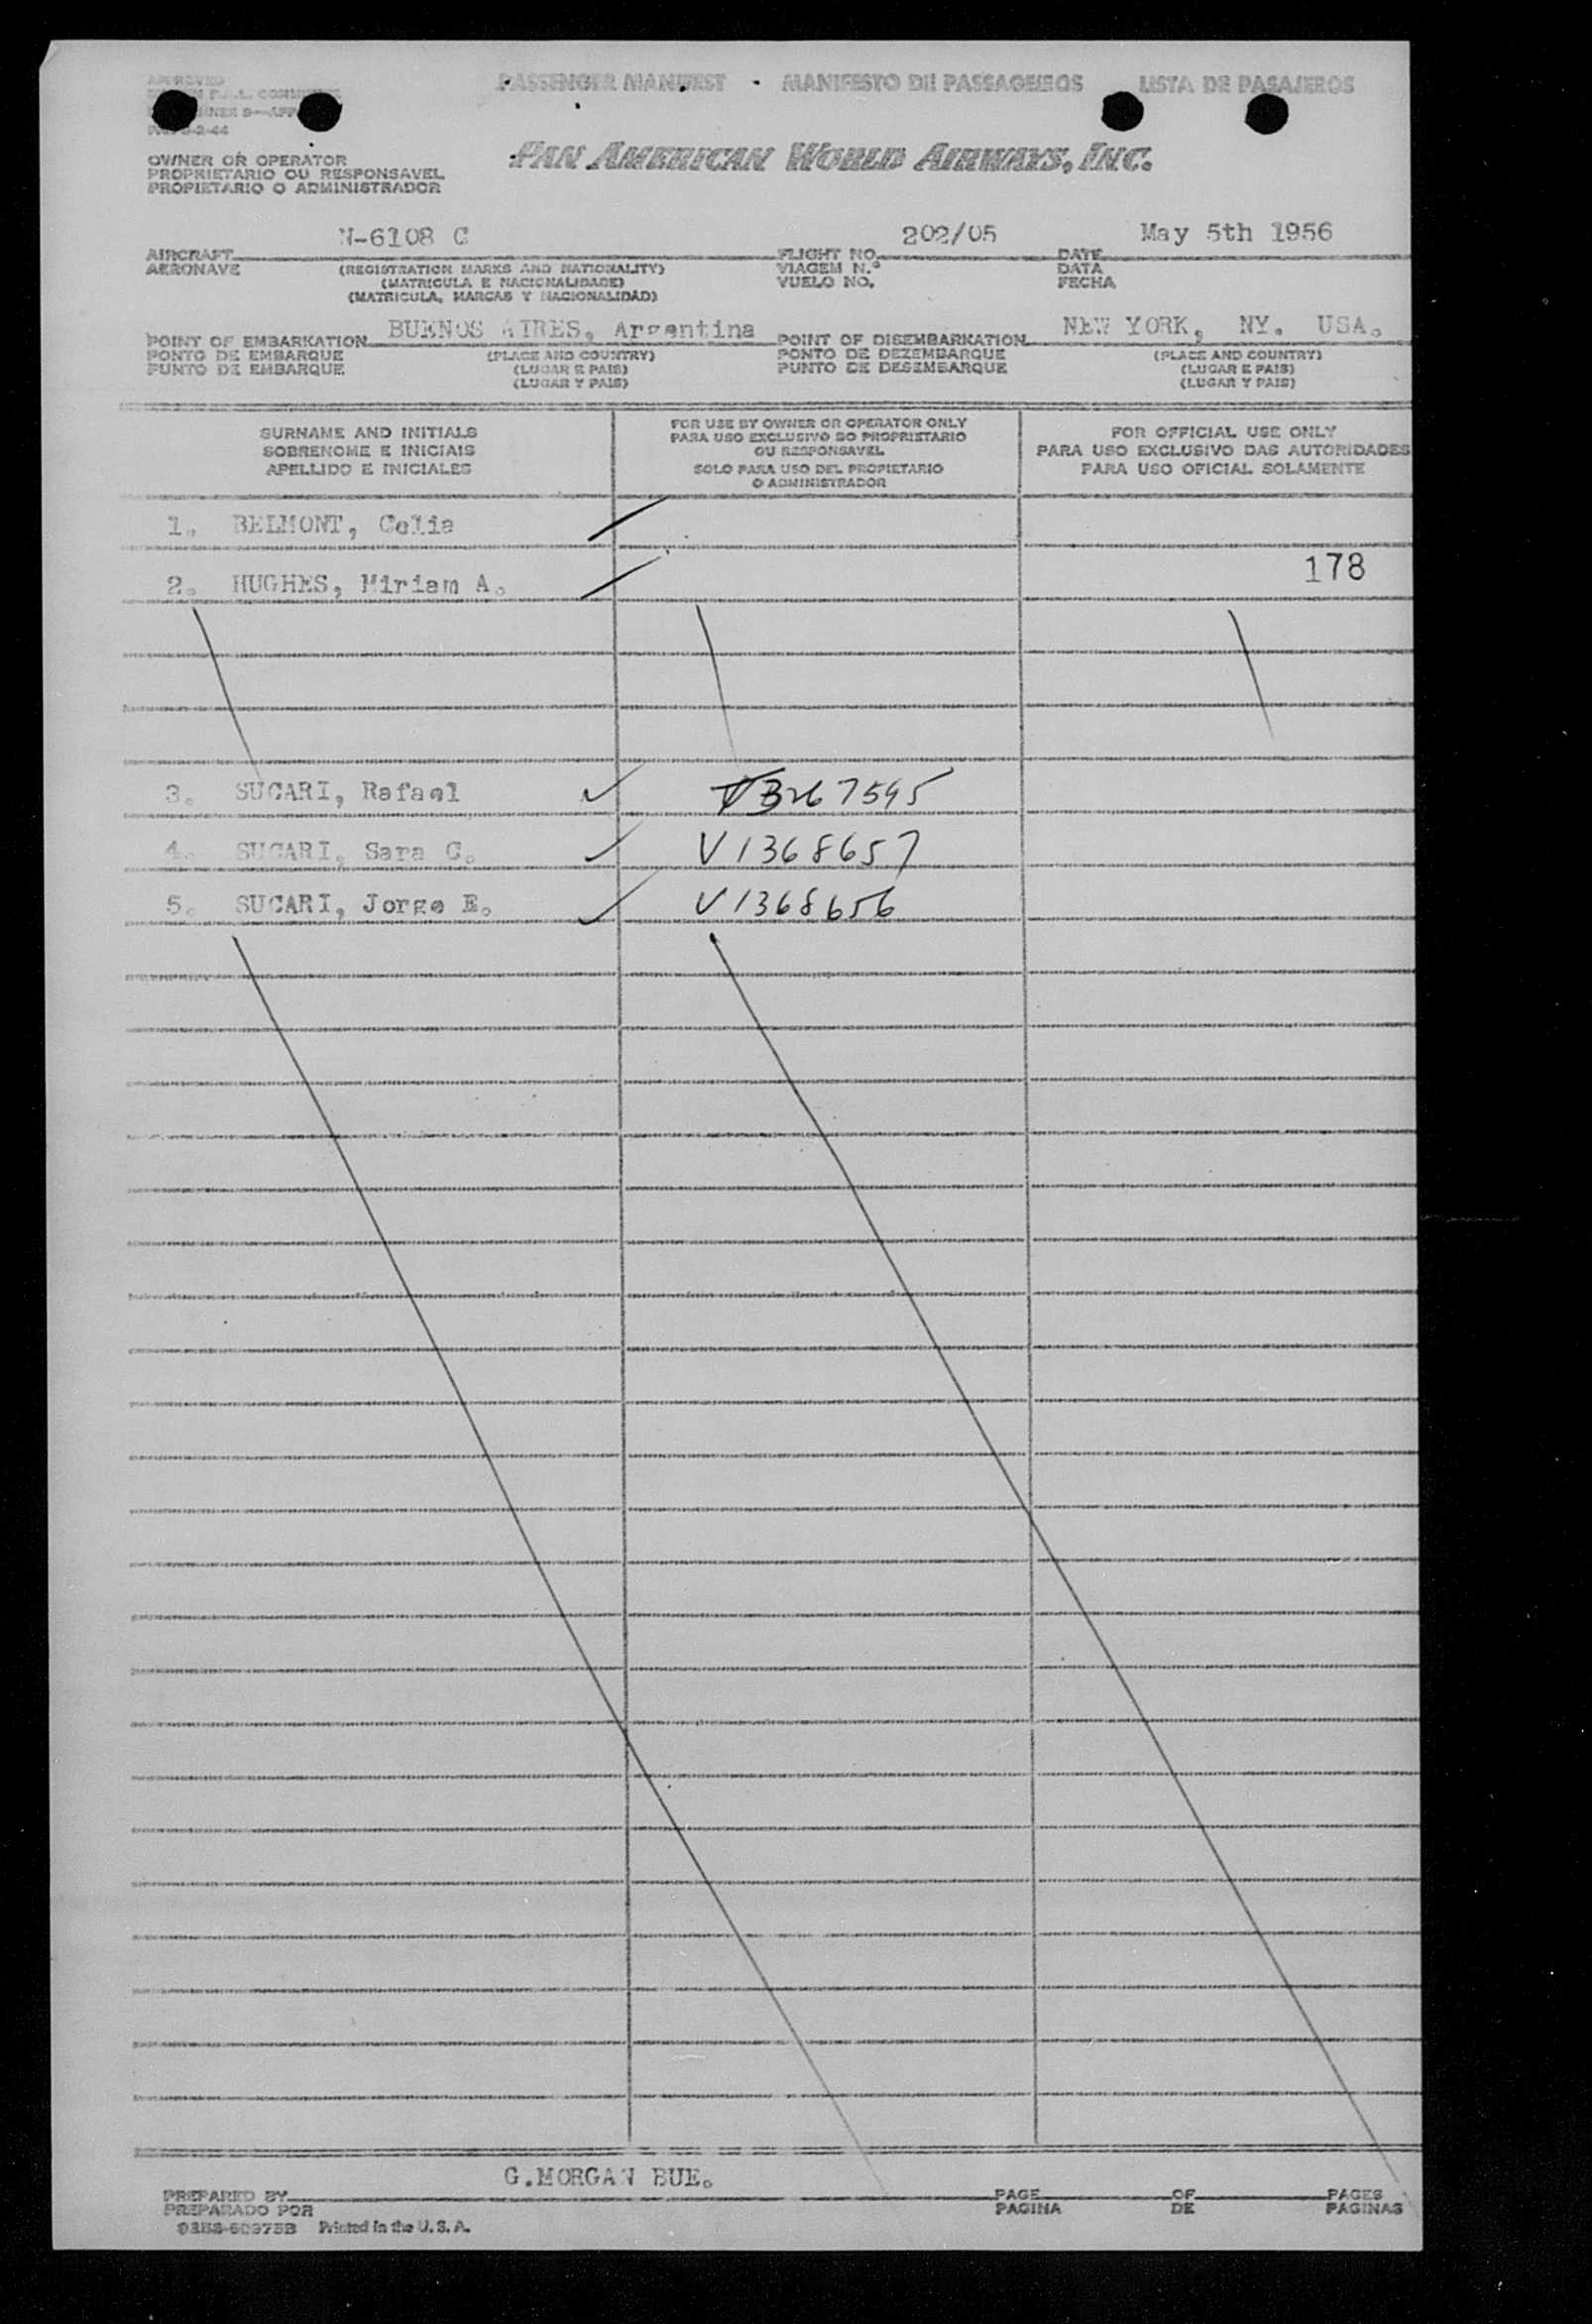 APPROVED
PASSENGER MANIFEST - MANIFESTO DE PASSAGEIROS LISTA DE PASAJEROS
PAN AMERICAN WORLD AIRWAYS, INC.
OWNER OR OPERATOR
PROPRIETARIO OU RESPONSAVEL
PROPIETARIO O ADMINISTRADOR
AIRCRAFT N-6108 C FLIGHT NO. 202/05 DATE May 5th 1956
AERONAVE (REGISTRATION MARKS AND NATIONALITY) VIAGEM N.º DATA
(MATRICULA E NACIONALIDADE) VUELO NO. FECHA
(MATRICULA, MARCAS Y NACIONALIDAD)
POINT OF EMBARKATION BUENOS AIRES, Argentina POINT OF DISEMBARKATION NEW YORK, NY. USA.
PONTO DE EMBARQUE (PLACE AND COUNTRY) PONTO DE DEZEMBARQUE (PLACE AND COUNTRY)
PUNTO DE EMBARQUE (LUGAR E PAIS) PUNTO DE DESEMBARQUE (LUGAR E PAIS)
(LUGAR Y PAIS) (LUGAR Y PAIS)
SURNAME AND INITIALS
SOBRENOME E INICIAIS
APELLIDO E INICIALES
FOR USE BY OWNER OR OPERATOR ONLY
PARA USO EXCLUSIVO DO PROPRIETARIO
OU RESPONSAVEL
SOLO PARA USO DEL PROPIETARIO
O ADMINISTRADOR
FOR OFFICIAL USE ONLY
PARA USO EXCLUSIVO DAS AUTORIDADES
PARA USO OFICIAL SOLAMENTE
1. BELMONT, Celia
2. HUGHES, Miriam A. 178
3. SUCARI, Rafael
4. SUCARI, Sara C. V1368657
5. SUCARI, Jorge E. V1368656
G.MORGAN BUE.
PREPARED BY PAGE OF PAGES
PREPARADO POR PAGINA DE PAGINAS
Printed in the U.S.A.